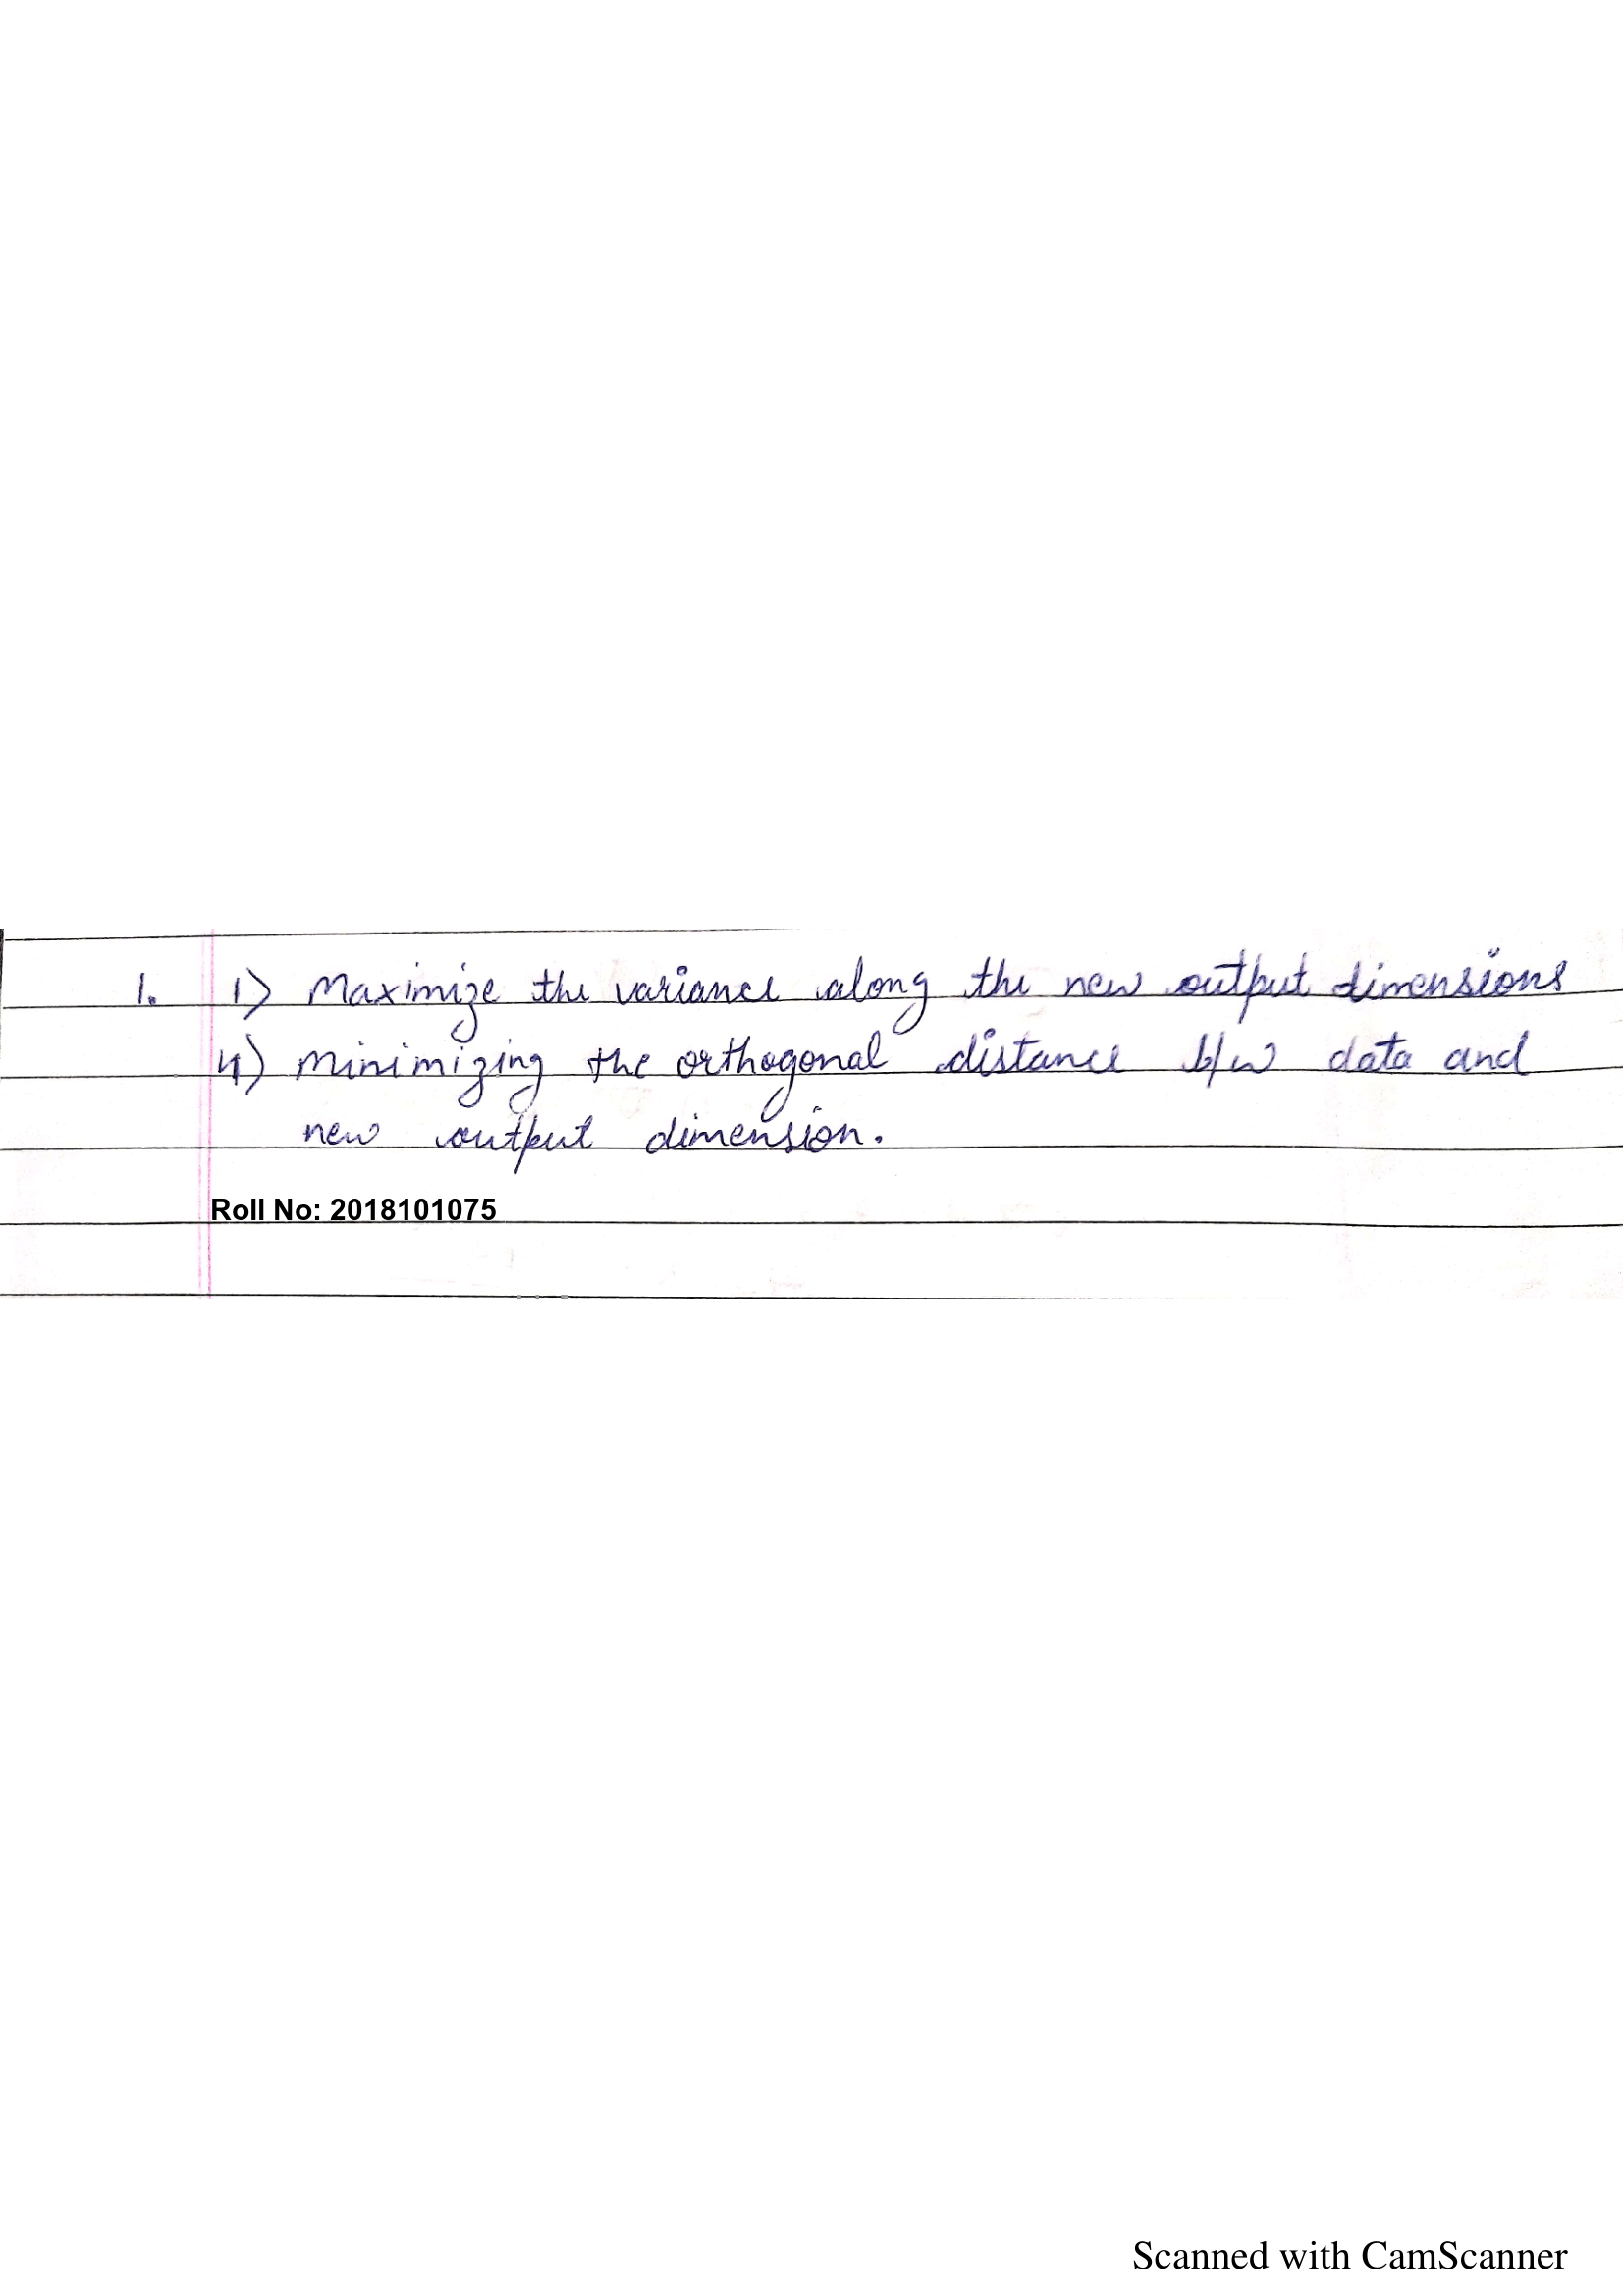 1. 1) Maximize the variance along the new output dimensions
4) Minimizing the orthogonal distance b/w data and
new output dimension.
Roll No: 2018101075
Scanned with CamScanner